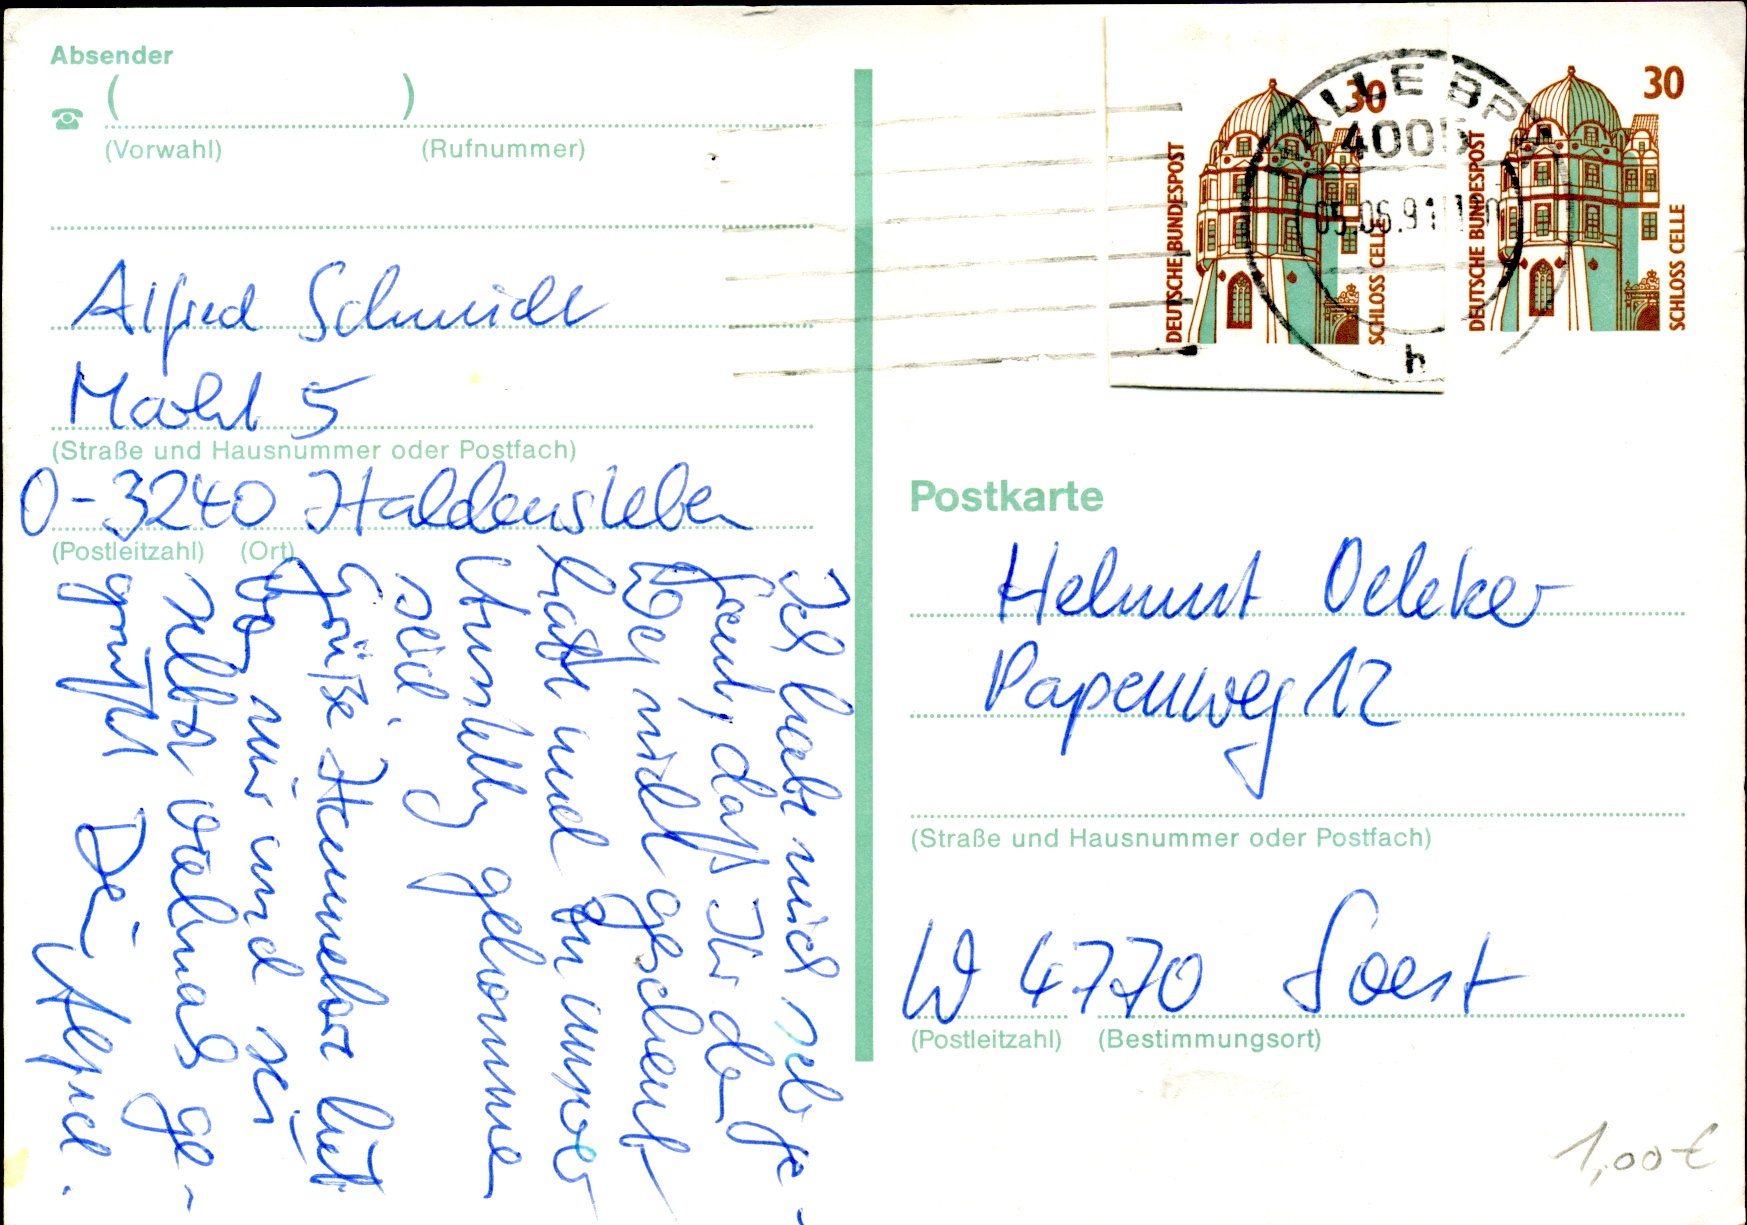 Absender
( )
(Vorwahl) (Rufnummer)
Alfred Schmidt
Markt 5
(Straße und Hausnummer oder Postfach)
O-3240 Haldensleben
(Postleitzahl) (Ort)
Ich habe mich sehr ge-
freut, daß Ihr den
Weg nicht gescheut
habt und zu unserer
Ausstellung gekommen
seid.
Grüße Hannelore lieb
von mir und sei
selbst vielmals ge-
grüßt Dein Alfred.
30
DEUTSCHE BUNDESPOST
SCHLOSS CELLE
30
DEUTSCHE BUNDESPOST
SCHLOSS CELLE
HALLE BPA
4005
05.06.91
h
Postkarte
Helmut Oeleker
Papenweg 12
(Straße und Hausnummer oder Postfach)
W 4770 Soest
(Postleitzahl) (Bestimmungsort)
1,00 €